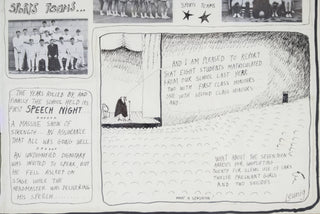 SPORTS TEAMS...
SPORTS TEAMS
THE YEARS ROLLED BY AND
FINALLY THE SCHOOL HELD ITS
FIRST SPEECH NIGHT.
A MASSIVE SHOW OF
STRENGTH - AN ASSURANCE
THAT ALL WAS GOING WELL.
AN UNIDENTIFIED DIGNITARY
WAS INVITED TO SPEAK BUT
HE FELL ASLEEP ON
STAGE WHILE THE
HEADMASTER WAS DELIVERING
HIS SPEECH.
AND I AM PLEASED TO REPORT
THAT EIGHT STUDENTS MATRICULATED
FROM OUR SCHOOL LAST YEAR.
TWO WITH FIRST CLASS HONOURS
ONE WITH SECOND CLASS HONOURS
AND
WHAT ABOUT THE SEVENTEEN
ARRESTS FOR SHOPLIFTING
TWENTY FOR ILLEGAL USE OF CARS
TWELVE PREGNANT GIRLS
AND TWO SUICIDES
WHAT A SENSATION